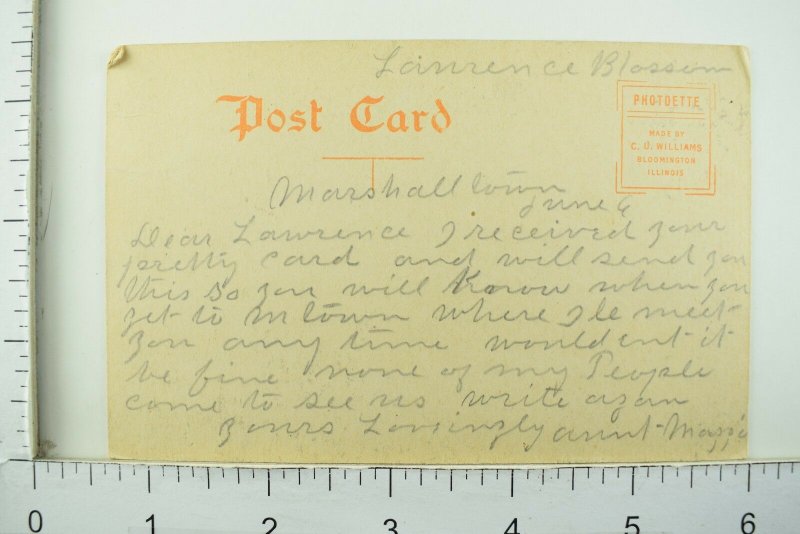 Lawrence Blossom
Post Card
PHOTOETTE
MADE BY
C. U. WILLIAMS
BLOOMINGTON
ILLINOIS
Marshalltown
June 6
Dear Lawrence I received your
pretty card and will send you
this so you will know when you
get to M town where Ile meet
you any time would ent it
be fine none of my People
come to see us write agan
yours Lovingly aunt Maggie
0 1 2 3 4 5 6